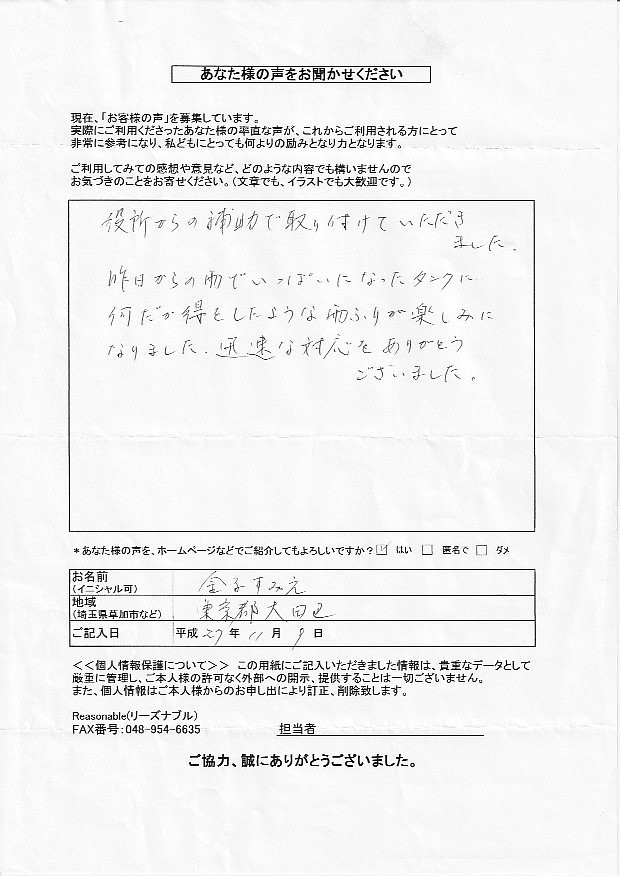 あなた様の声をお聞かせください
現在、「お客様の声」を募集しています。
実際にご利用くださったあなた様の率直な声が、これからご利用される方にとって
非常に参考になり、私どもにとっても何よりの励みとなり力となります。
ご利用してみての感想や意見など、どのような内容でも構いませんので
お気づきのことをお寄せください。(文章でも、イラストでも大歓迎です。)
役所からの補助で取り付けていただき
ました。
昨日からの雨でいっぱいになったタンクに
何だか得をしたような雨ふりが楽しみに
なりました。迅速な対応をありがとう
ございました。
*あなた様の声を、ホームページなどでご紹介してもよろしいですか? ☑ はい □ 匿名で □ ダメ
お名前
(イニシャル可) 金子すみえ
地域
(埼玉県草加市など) 東京都大田区
ご記入日 平成 27 年 11 月 9 日
<<個人情報保護について>> この用紙にご記入いただきました情報は、貴重なデータとして
厳重に管理し、ご本人様の許可なく外部への開示、提供することは一切ございません。
また、個人情報はご本人様からのお申し出により訂正、削除致します。
Reasonable(リーズナブル)
FAX番号:048-954-6635 担当者
ご協力、誠にありがとうございました。